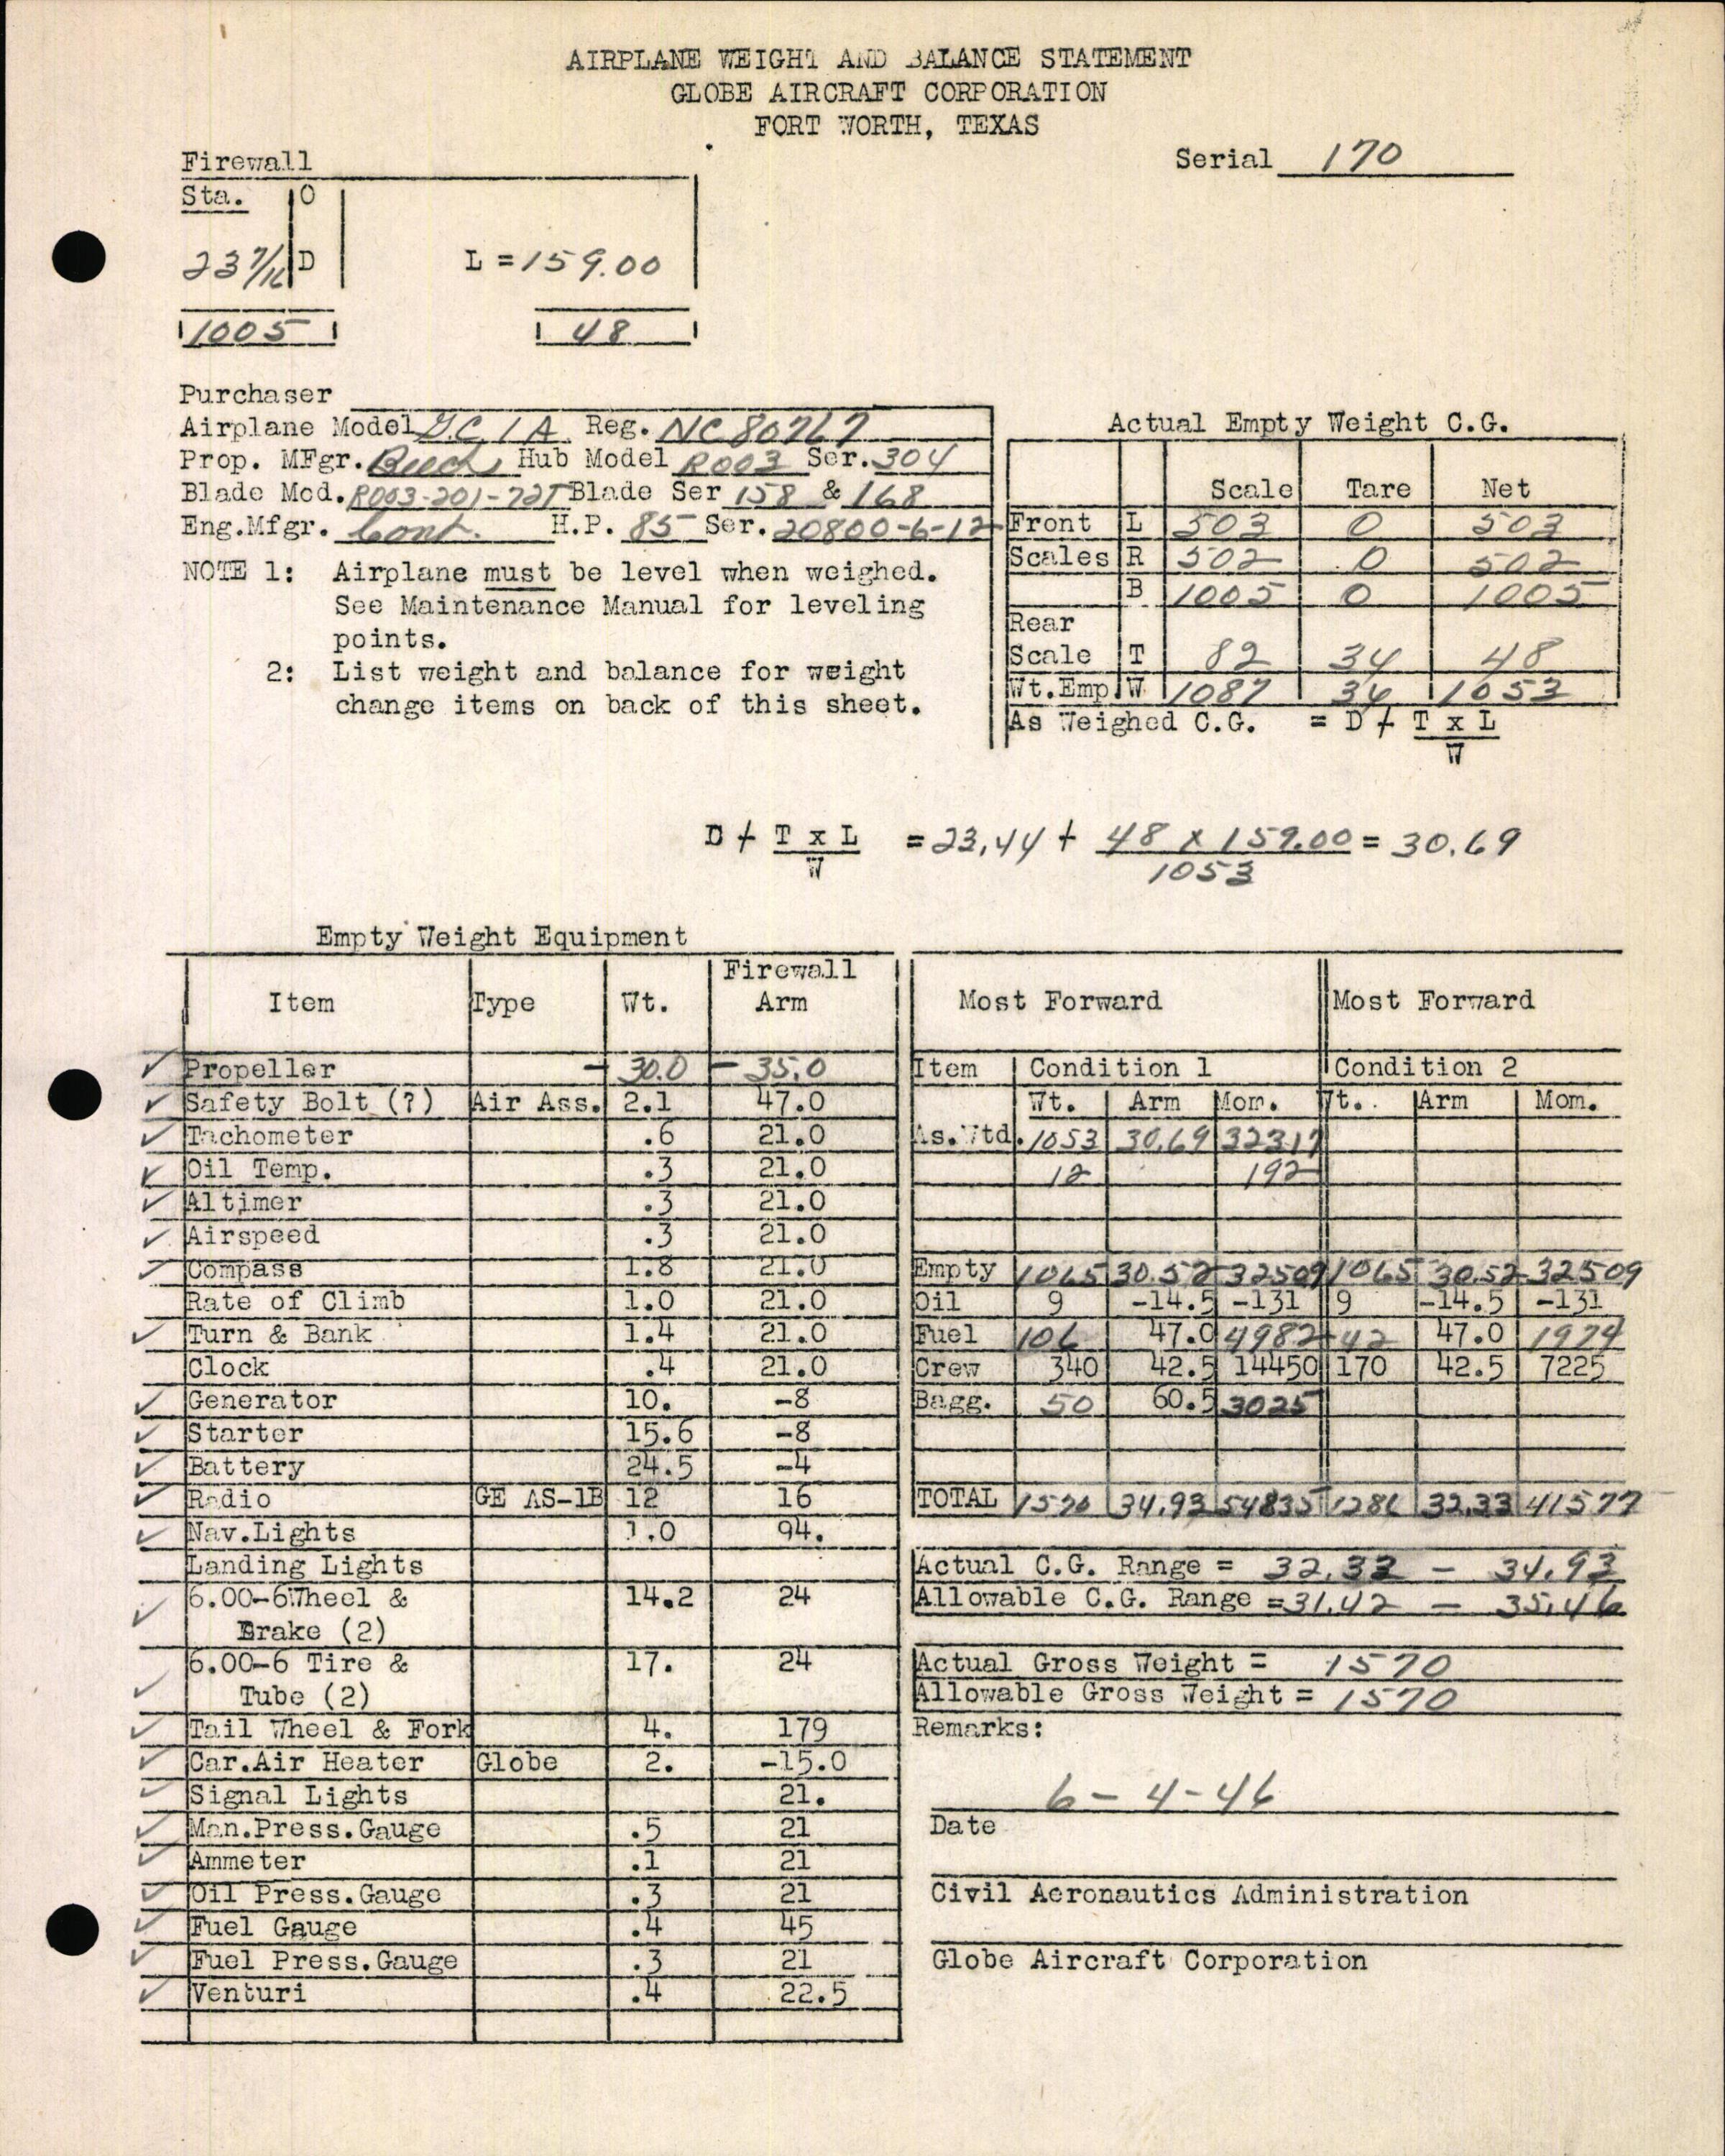 AIRPLANE WEIGHT AND BALANCE STATEMENT
GLOBE AIRCRAFT CORPORATION
FORT WORTH, TEXAS
Serial 170
Firewall
Sta. O
23 7/16 D L = 159.00
1005 48
Purchaser
Airplane Model G.C. 1 A Reg. NC 80767
Prop. MFgr. Beech Hub Model R003 Ser. 304
Blade Mod. R003-201-72T Blade Ser 158 & 168
Eng.Mfgr. Cont. H.P. 85 Ser. 20800-6-12
NOTE 1: Airplane must be level when weighed.
See Maintenance Manual for leveling
points.
2: List weight and balance for weight
change items on back of this sheet.
Actual Empty Weight C.G.
Scale Tare Net
Front L 503 0 503
Scales R 502 0 502
B 1005 0 1005
Rear
Scale T 82 34 48
Wt.Emp. W 1087 34 1053
As Weighed C.G. = D + T x L
W
D + T x L = 23.44 + 48 x 159.00 = 30.69
W 1053
Empty Weight Equipment
Item Type Wt. Firewall Arm
✓ Propeller - 30.0 - 35.0
✓ Safety Bolt (?) Air Ass. 2.1 47.0
✓ Tachometer .6 21.0
✓ Oil Temp. .3 21.0
✓ Altimer .3 21.0
✓ Airspeed .3 21.0
✓ Compass 1.8 21.0
Rate of Climb 1.0 21.0
✓ Turn & Bank 1.4 21.0
Clock .4 21.0
✓ Generator 10. -8
✓ Starter 15.6 -8
✓ Battery 24.5 -4
✓ Radio GE AS-1B 12 16
✓ Nav.Lights 1.0 94.
Landing Lights
✓ 6.00-6Wheel & 14.2 24
Brake (2)
6.00-6 Tire & 17. 24
✓ Tube (2)
✓ Tail Wheel & Fork 4. 179
✓ Car.Air Heater Globe 2. -15.0
✓ Signal Lights 21.
✓ Man.Press.Gauge .5 21
✓ Ammeter .1 21
✓ Oil Press.Gauge .3 21
✓ Fuel Gauge .4 45
✓ Fuel Press.Gauge .3 21
✓ Venturi .4 22.5
Most Forward Most Forward
Item Condition 1 Condition 2
Wt. Arm Mom. Wt.. Arm Mom.
As.Wtd. 1053 30.69 32317
12 192
Empty 1065 30.52 32509 1065 30.52 32509
Oil 9 -14.5 -131 9 -14.5 -131
Fuel 106 47.0 4982 42 47.0 1974
Crew 340 42.5 14450 170 42.5 7225
Bagg. 50 60.5 3025
TOTAL 1570 34.93 54835 1286 32.33 41577
Actual C.G. Range = 32.33 - 34.93
Allowable C.G. Range = 31.42 - 35.46
Actual Gross Weight = 1570
Allowable Gross Weight = 1570
Remarks:
6-4-46
Date
Civil Aeronautics Administration
Globe Aircraft Corporation